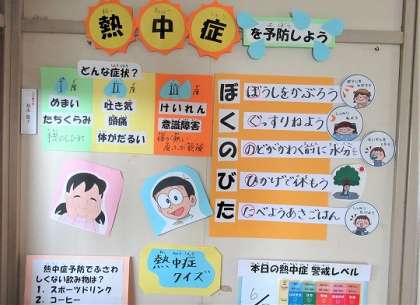 熱中症
を予防しよう
どんな症状?
めまい
たちくらみ
吐き気
頭痛
体がだるい
けいれん
意識障害
ぼくのびた
ぼうしをかぶろう
ぐっすりねよう
のどがかわく前に水分を
ひかげで休もう
たべようあさごはん
熱中症
クイズ
熱中症予防でふさわ
しくない飲み物は?
1. スポーツドリンク
2. コーヒー
本日の熱中症 警戒レベル
6